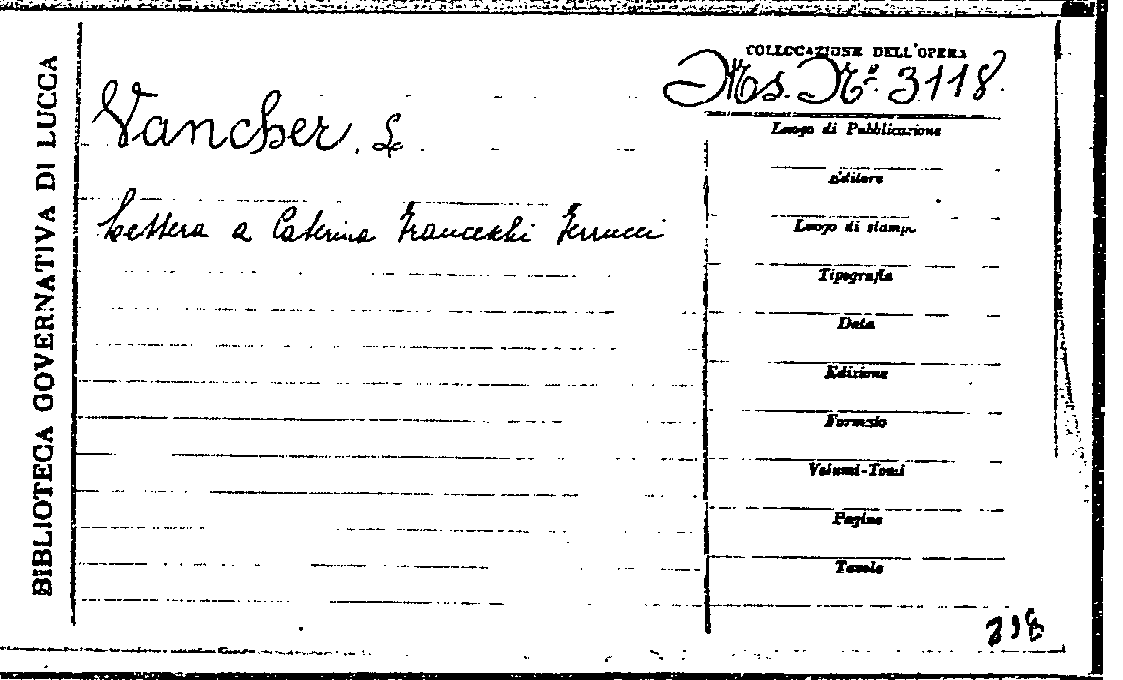 BIBLIOTECA GOVERNATIVA DI LUCCA
COLLOCAZIONE DELL'OPERA
Ms. Nº. 3118.
Vancher, L.
Lettera a Caterina Franceschi Ferrucci
Luogo di Pubblicazione
Editore
Luogo di stampa
Tipografia
Data
Edizione
Formato
Volumi-Tomi
Pagine
Tavole
318